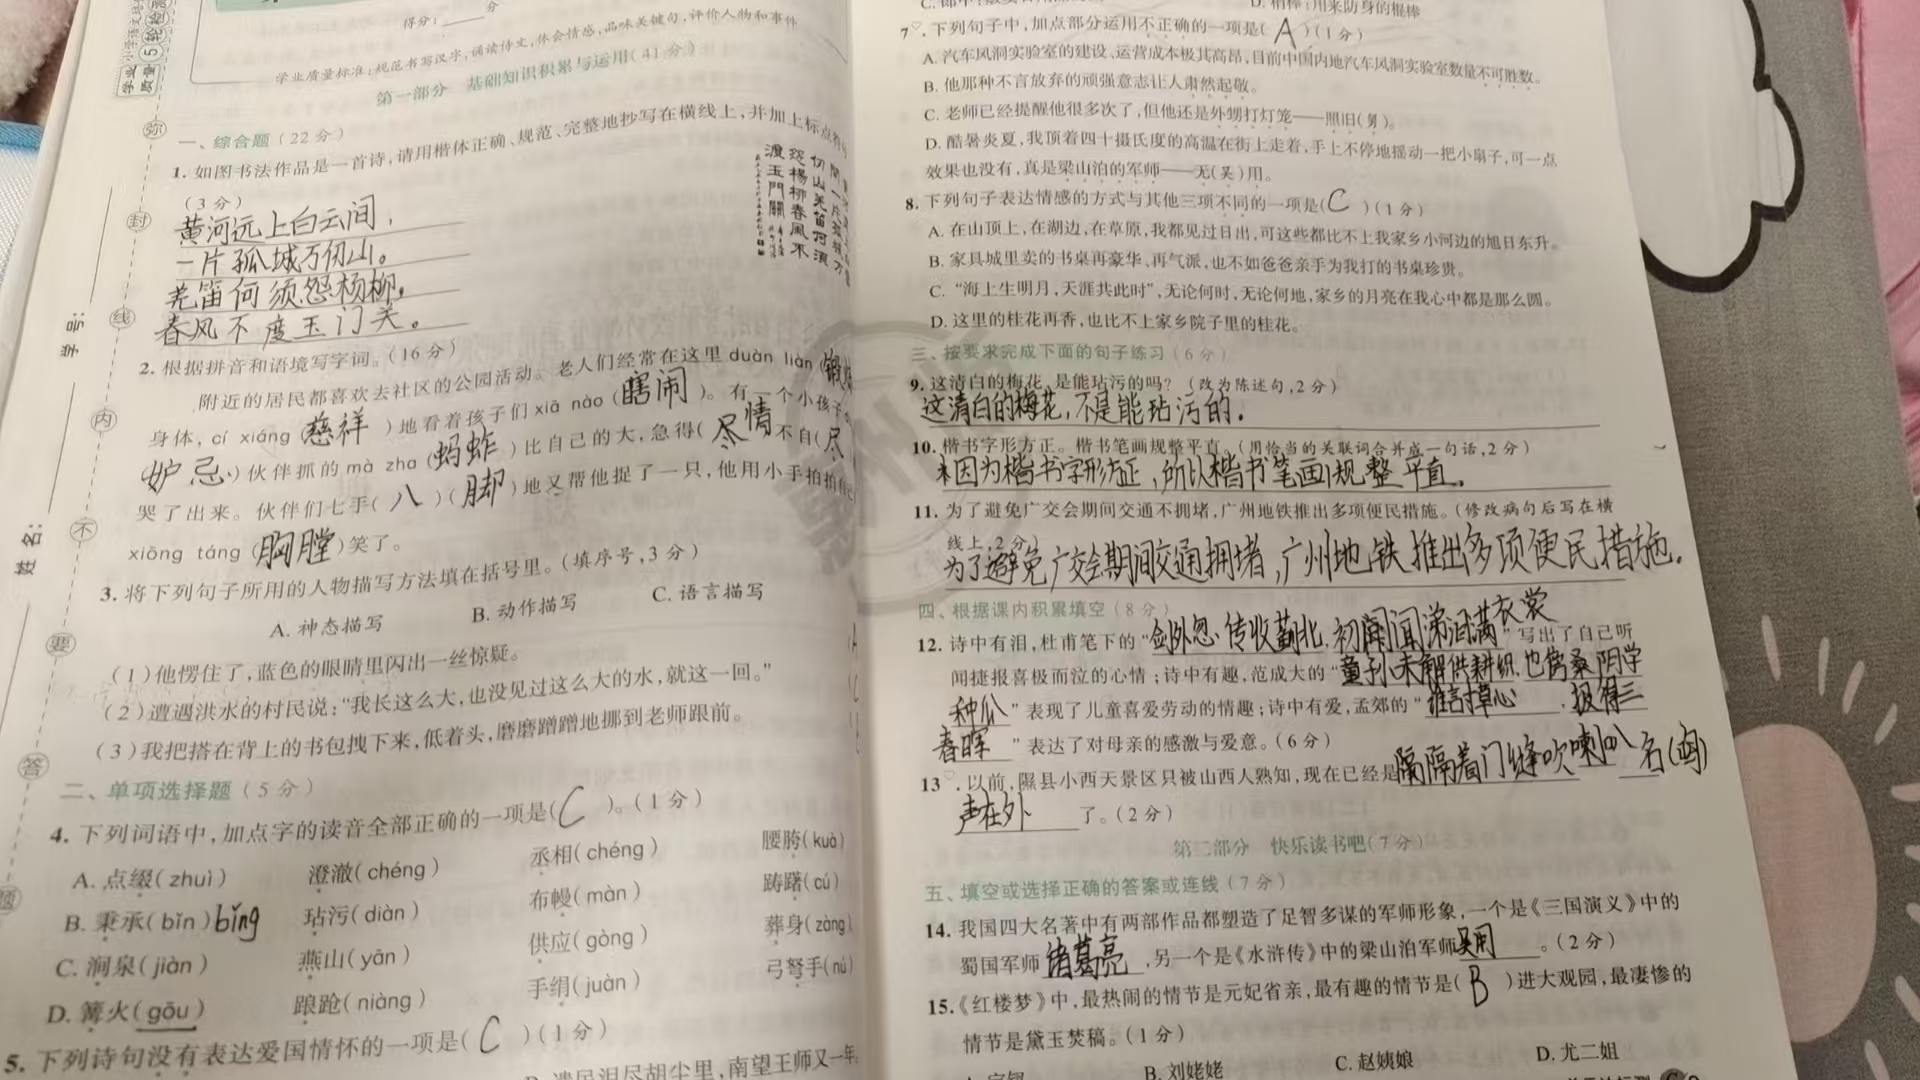 得分：____分
学业质量标准：规范书写汉字，诵读诗文，体会情感，品味关键句，评价人物和事件
第一部分 基础知识积累与运用（41分）
一、综合题（22分）
1. 如图书法作品是一首诗，请用楷体正确、规范、完整地抄写在横线上，并加上标点符号
（3分）
黄河远上白云间，
一片孤城万仞山。
羌笛何须怨杨柳，
春风不度玉门关。
2. 根据拼音和语境写字词。（16分）
附近的居民都喜欢去社区的公园活动。老人们经常在这里 duàn liàn（锻
身体，cí xiáng（慈祥）地看着孩子们 xiā nào（瞎闹）。有一个小孩子
妒忌）伙伴抓的 mà zha（蚂蚱）比自己的大，急得（尽情不自（尽
哭了出来。伙伴们七手（八）（脚）地又帮他捉了一只，他用小手拍拍自己
xiōng táng（胸膛）笑了。
3. 将下列句子所用的人物描写方法填在括号里。（填序号，3分）
A. 神态描写 B. 动作描写 C. 语言描写
（1）他愣住了，蓝色的眼睛里闪出一丝惊疑。
（2）遭遇洪水的村民说：“我长这么大，也没见过这么大的水，就这一回。”
（3）我把搭在背上的书包拽下来，低着头，磨磨蹭蹭地挪到老师跟前。
二、单项选择题（5分）
4. 下列词语中，加点字的读音全部正确的一项是（C）。（1分）
A. 点缀（zhuì） 澄澈（chéng） 丞相（chéng） 腰胯（kuà）
B. 秉承（bǐn）bǐng 玷污（diàn） 布幔（màn） 踌躇（cú）
C. 涧泉（jiàn） 燕山（yān） 供应（gòng） 葬身（zàng）
D. 篝火（gōu） 踉跄（niàng） 手绢（juàn） 弓弩手（nú）
5. 下列诗句没有表达爱国情怀的一项是（C）（1分）
遗民泪尽胡尘里，南望王师又一年。
学号：
姓名：
弥
封
线
内
不
要
答
题
D. 梢棒：用来防身的棍棒
7. 下列句子中，加点部分运用不正确的一项是（A）（1分）
A. 汽车风洞实验室的建设、运营成本极其高昂，目前中国内地汽车风洞实验室数量不可胜数。
B. 他那种不言放弃的顽强意志让人肃然起敬。
C. 老师已经提醒他很多次了，但他还是外甥打灯笼——照旧（舅）。
D. 酷暑炎夏，我顶着四十摄氏度的高温在街上走着，手上不停地摇动一把小扇子，可一点
效果也没有，真是梁山泊的军师——无（吴）用。
8. 下列句子表达情感的方式与其他三项不同的一项是（C）（1分）
A. 在山顶上，在湖边，在草原，我都见过日出，可这些都比不上我家乡小河边的旭日东升。
B. 家具城里卖的书桌再豪华、再气派，也不如爸爸亲手为我打的书桌珍贵。
C. “海上生明月，天涯共此时”，无论何时，无论何地，家乡的月亮在我心中都是那么圆。
D. 这里的桂花再香，也比不上家乡院子里的桂花。
三、按要求完成下面的句子练习（6分）
9. 这清白的梅花，是能玷污的吗？（改为陈述句，2分）
这清白的梅花，不是能玷污的。
10. 楷书字形方正。楷书笔画规整平直。（用恰当的关联词合并成一句话，2分）
因为楷书字形方正，所以楷书笔画规整平直。
11. 为了避免广交会期间交通不拥堵，广州地铁推出多项便民措施。（修改病句后写在横
线上，2分）
为了避免广交会期间交通拥堵，广州地铁推出多项便民措施。
四、根据课内积累填空（8分）
12. 诗中有泪，杜甫笔下的“剑外忽传收蓟北，初闻涕泪满衣裳”写出了自己听
闻捷报喜极而泣的心情；诗中有趣，范成大的“童孙未解供耕织，也傍桑阴学
种瓜”表现了儿童喜爱劳动的情趣；诗中有爱，孟郊的“谁言寸草心，报得三
春晖”表达了对母亲的感激与爱意。（6分）
13. 以前，隰县小西天景区只被山西人熟知，现在已经是隔着门缝吹喇叭 名（鸣）
声在外了。（2分）
第二部分 快乐读书吧（7分）
五、填空或选择正确的答案或连线（7分）
14. 我国四大名著中有两部作品都塑造了足智多谋的军师形象，一个是《三国演义》中的
蜀国军师诸葛亮，另一个是《水浒传》中的梁山泊军师吴用。（2分）
15.《红楼梦》中，最热闹的情节是元妃省亲，最有趣的情节是（B）进大观园，最凄惨的
情节是黛玉焚稿。（1分）
B. 刘姥姥 C. 赵姨娘 D. 尤二姐